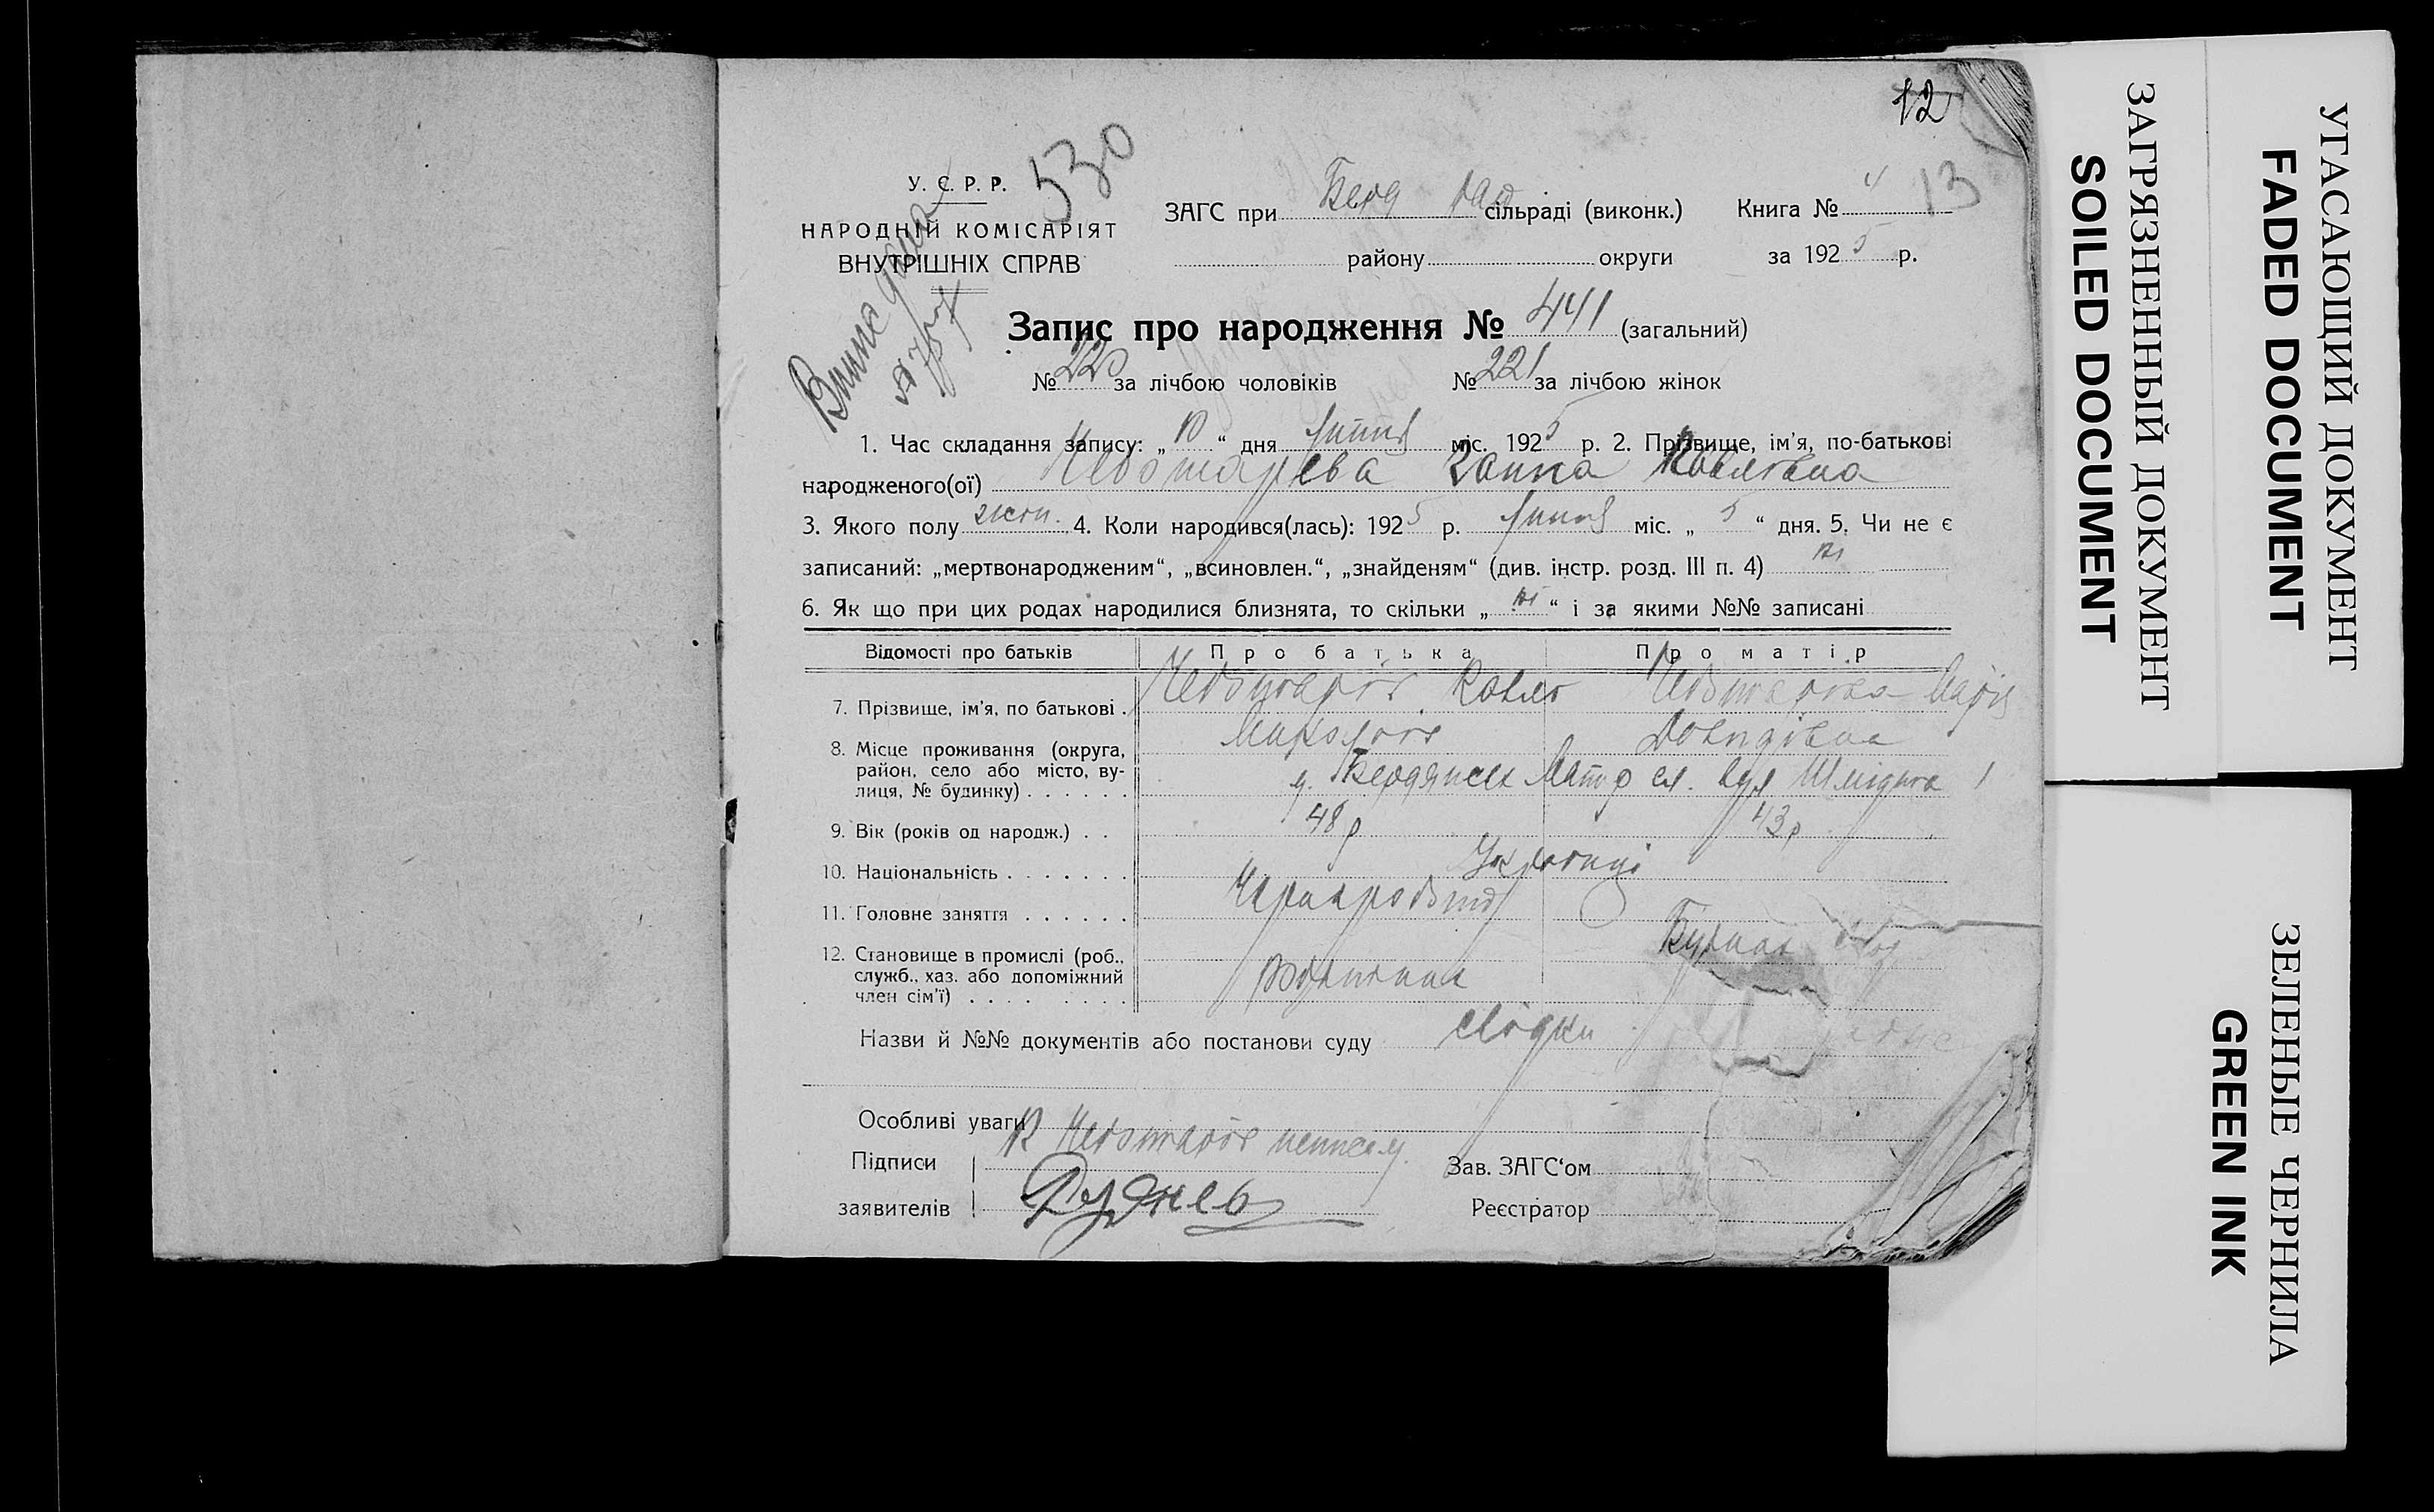 12
13
530
У. Є. Р. Р.
НАРОДНІЙ КОМІСАРІЯТ
ВНУТРІШНІХ СПРАВ
ЗАГС при Берд сільраді (виконк.) Книга № 4
району округи за 1925 р.
Запис про народження № 441 (загальний)
№ 220 за лічбою чоловіків № 221 за лічбою жінок
1. Час складання запису: „10“ дня липня міс. 1925 р. 2. Прізвище, ім'я, по-батькові
народженого(ої) Чеботарева Ганна Павлівна
3. Якого полу жін. 4. Коли народився(лась): 1925 р. липня міс. „5“ дня. 5. Чи не є
записаний: „мертвонародженим“, „всиновлен.“, „знайденям“ (див. інстр. розд. III п. 4) ні
6. Як що при цих родах народилися близнята, то скільки „ні“ і за якими №№ записані
Відомості про батьків Про батька Про матір
7. Прізвище, ім'я, по батькові . Чеботарів Павло Чеботарова Марія
Давидівна
8. Місце проживання (округа, район, село або місто, вулиця, № будинку) . . . . . . Бердянськ вул Шмідта 1
9. Вік (років од народж.) . . 48 р 43 р
10. Національність . . . . . . . Українці
11. Головне заняття . . . . . . Чорнороб
12. Становище в промислі (роб., служб., хаз. або допоміжний член сім'ї) . . . . . . . .
Назви й №№ документів або постанови суду свідки
Особливі уваги
Підписи Чеботарів неписм.
заявителів Руднев
Зав. ЗАГС‘ом
Реєстратор
ЗАГРЯЗНЕННЫЙ ДОКУМЕНТ
SOILED DOCUMENT
УГАСАЮЩИЙ ДОКУМЕНТ
FADED DOCUMENT
ЗЕЛЕНЫЕ ЧЕРНИЛА
GREEN INK